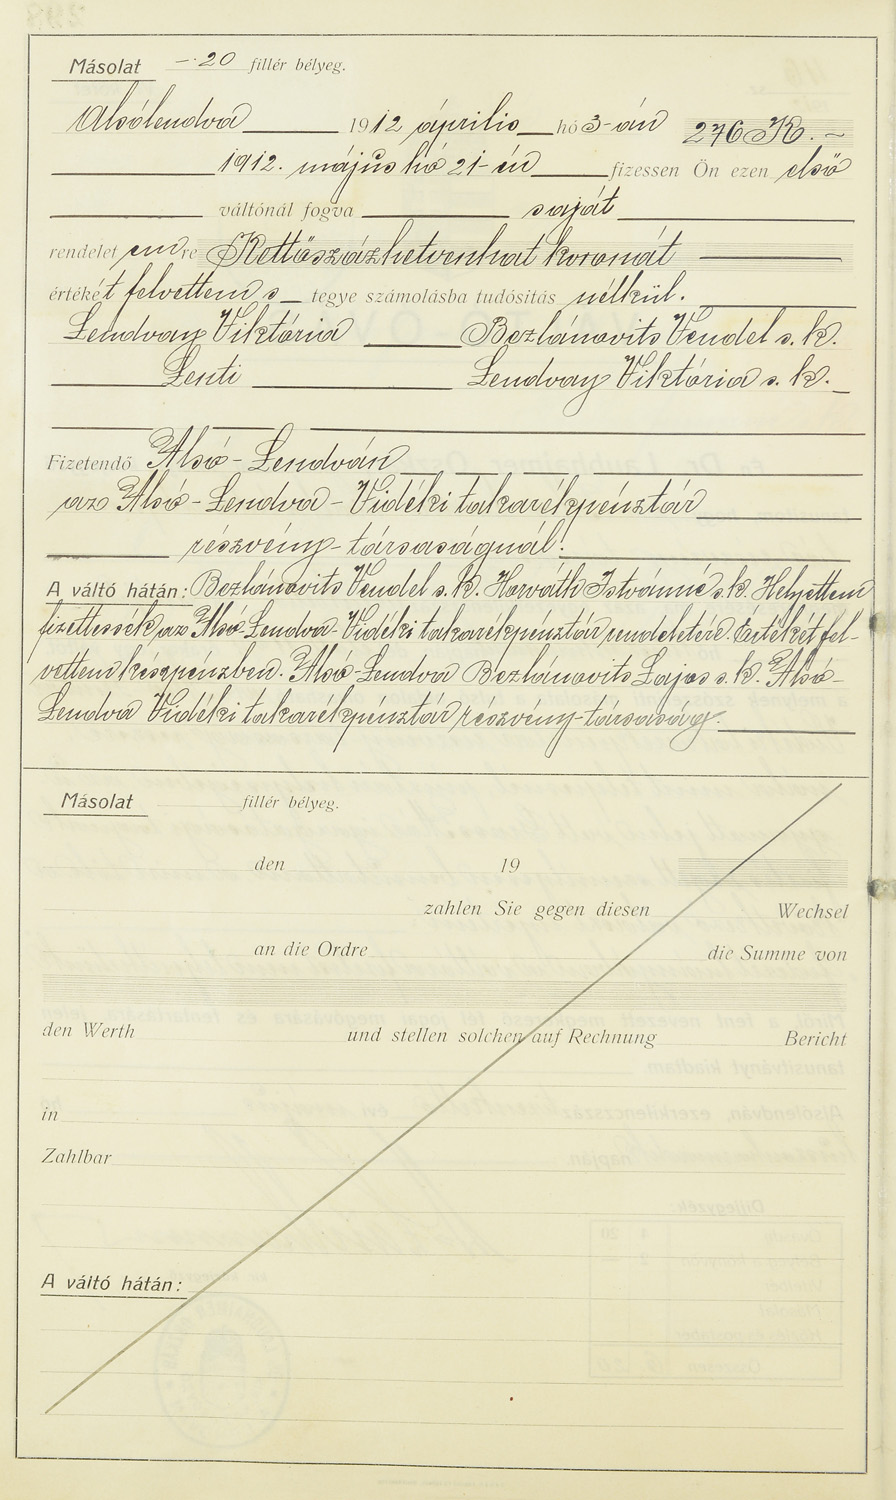 Másolat —·20 fillér bélyeg.
Alsólendva 1912 április hó 3-án 276 K. –
1912. május hó 21-én fizessen Ön ezen első
váltónál fogva saját
rendelet emre Kettőszázhetvenhat koronát
értékét felvettem s tegye számolásba tudósítás nélkül.
Lendvay Viktória Bezlánovits Vendel s. k.
Lenti Lendvay Viktória s. k.
Fizetendő Alsó-Lendván
az Alsó-Lendva-Vidéki takarékpénztár
részvény-társaságnál.
A váltó hátán: Bezlánovits Vendel s. k. Horváth Istvánné s. k. Helyettem
fizettessék az Alsó-Lendva-Vidéki takarékpénztár rendeletére. Értékét fel-
vettem készpénzben. Alsó-Lendva Bezlánovits Lajos s. k. Alsó-
Lendva Vidéki takarékpénztár részvény-társaság.
Másolat fillér bélyeg.
den 19
zahlen Sie gegen diesen Wechsel
an die Ordre die Summe von
den Werth und stellen solchen auf Rechnung Bericht
in
Zahlbar
A váltó hátán: